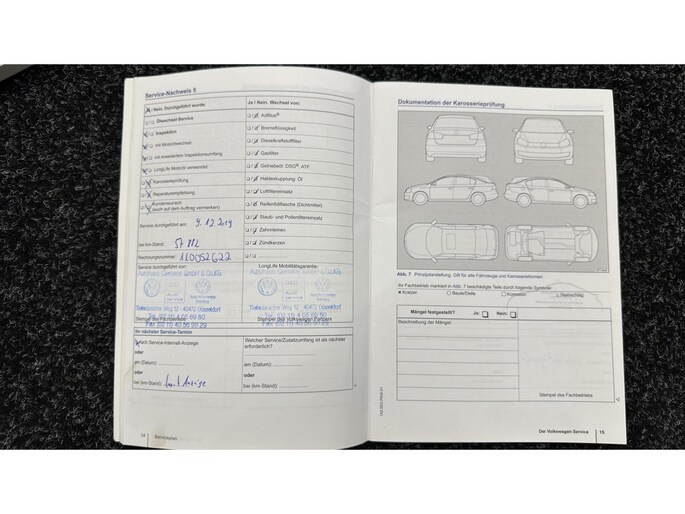 Service-Nachweis 5
Ja / Nein. Durchgeführt wurde:
Ölwechsel-Service
Inspektion
mit Motorölwechsel
mit erweitertem Inspektionsumfang
LongLife Motoröl verwendet
Karosserieprüfung
Reparaturempfehlung
Kundenwunsch
(auch auf dem Auftrag vermerken)
Service durchgeführt am: 9.12.2019
bei km-Stand:
Rechnungsnummer: 110052622
Service durchgeführt von:
Ja / Nein. Wechsel von:
AdBlue®
Bremsflüssigkeit
Dieselkraftstofffilter
Gasfilter
Getriebeöl: DSG®, ATF
Haldexkupplung: Öl
Luftfiltereinsatz
Reifenfüllflasche (Dichtmittel)
Staub- und Pollenfiltereinsatz
Zahnriemen
Zündkerzen
LongLife Mobilitätsgarantie:
GmbH & Co.KG
Weg 12 - 40472 Düsseldorf
Stempel des Fachbetriebs
Stempel des Volkswagen Partners
Ihr nächster Service-Termin
Nach Service-Intervall-Anzeige
oder
am (Datum):
oder
bei (km-Stand): laut Anzeige
Welcher Service/Zusatzumfang ist als nächster
erforderlich?
am (Datum):
oder
bei (km-Stand):
14 Serviceplan
Dokumentation der Karosserieprüfung
Abb. 7 Prinzipdarstellung. Gilt für alle Fahrzeuge und Karosserieformen.
Ihr Fachbetrieb markiert in Abb. 7 beschädigte Teile durch folgende Symbole:
Kratzer
Beule/Delle
Korrosion
Steinschlag
Mängel festgestellt? Ja: Nein:
Beschreibung der Mängel:
Stempel des Fachbetriebs
Der Volkswagen Service 15